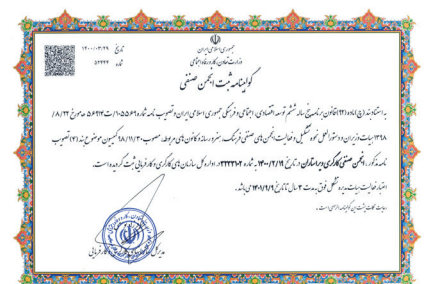 جمهوری اسلامی ایران
وزارت تعاون، کار و رفاه اجتماعی
تاریخ ۱۴۰۰/۰۳/۲۹
شماره ۵۶۴۴۴
گواهینامه ثبت انجمن صنفی
به استناد بند (چ) ماده (۹۲) قانون برنامه پنج ساله ششم توسعه اقتصادی، اجتماعی و فرهنگی جمهوری اسلامی ایران و تصویب نامه شماره ۱۰۵۵۶۹/ت۵۶۹۲۴ه مورخ ۸/۲۲/
۱۳۹۸ هیات وزیران و دستورالعمل نحوه تشکیل و فعالیت انجمن های صنفی فرهنگ، هنر و رسانه و کانون های مربوطه، مصوب ۹۸/۱۱/۳۰ کمیسیون موضوع بند (۴) تصویب
نامه مذکور، انجمن صنفی کارگری ویراستاران در تاریخ ۱۴۰۰/۲/۱۹ به شماره در اداره کل سازمان های کارگری و کارفرمایی ثبت گردیده است.
اعتبار فعالیت هیات مدیره تشکل فوق به مدت ۲ سال تا تاریخ می باشد.
رعایت نکات پشت این گواهینامه الزامی است.
مدیرکل سازمان های کارگری و کارفرمایی